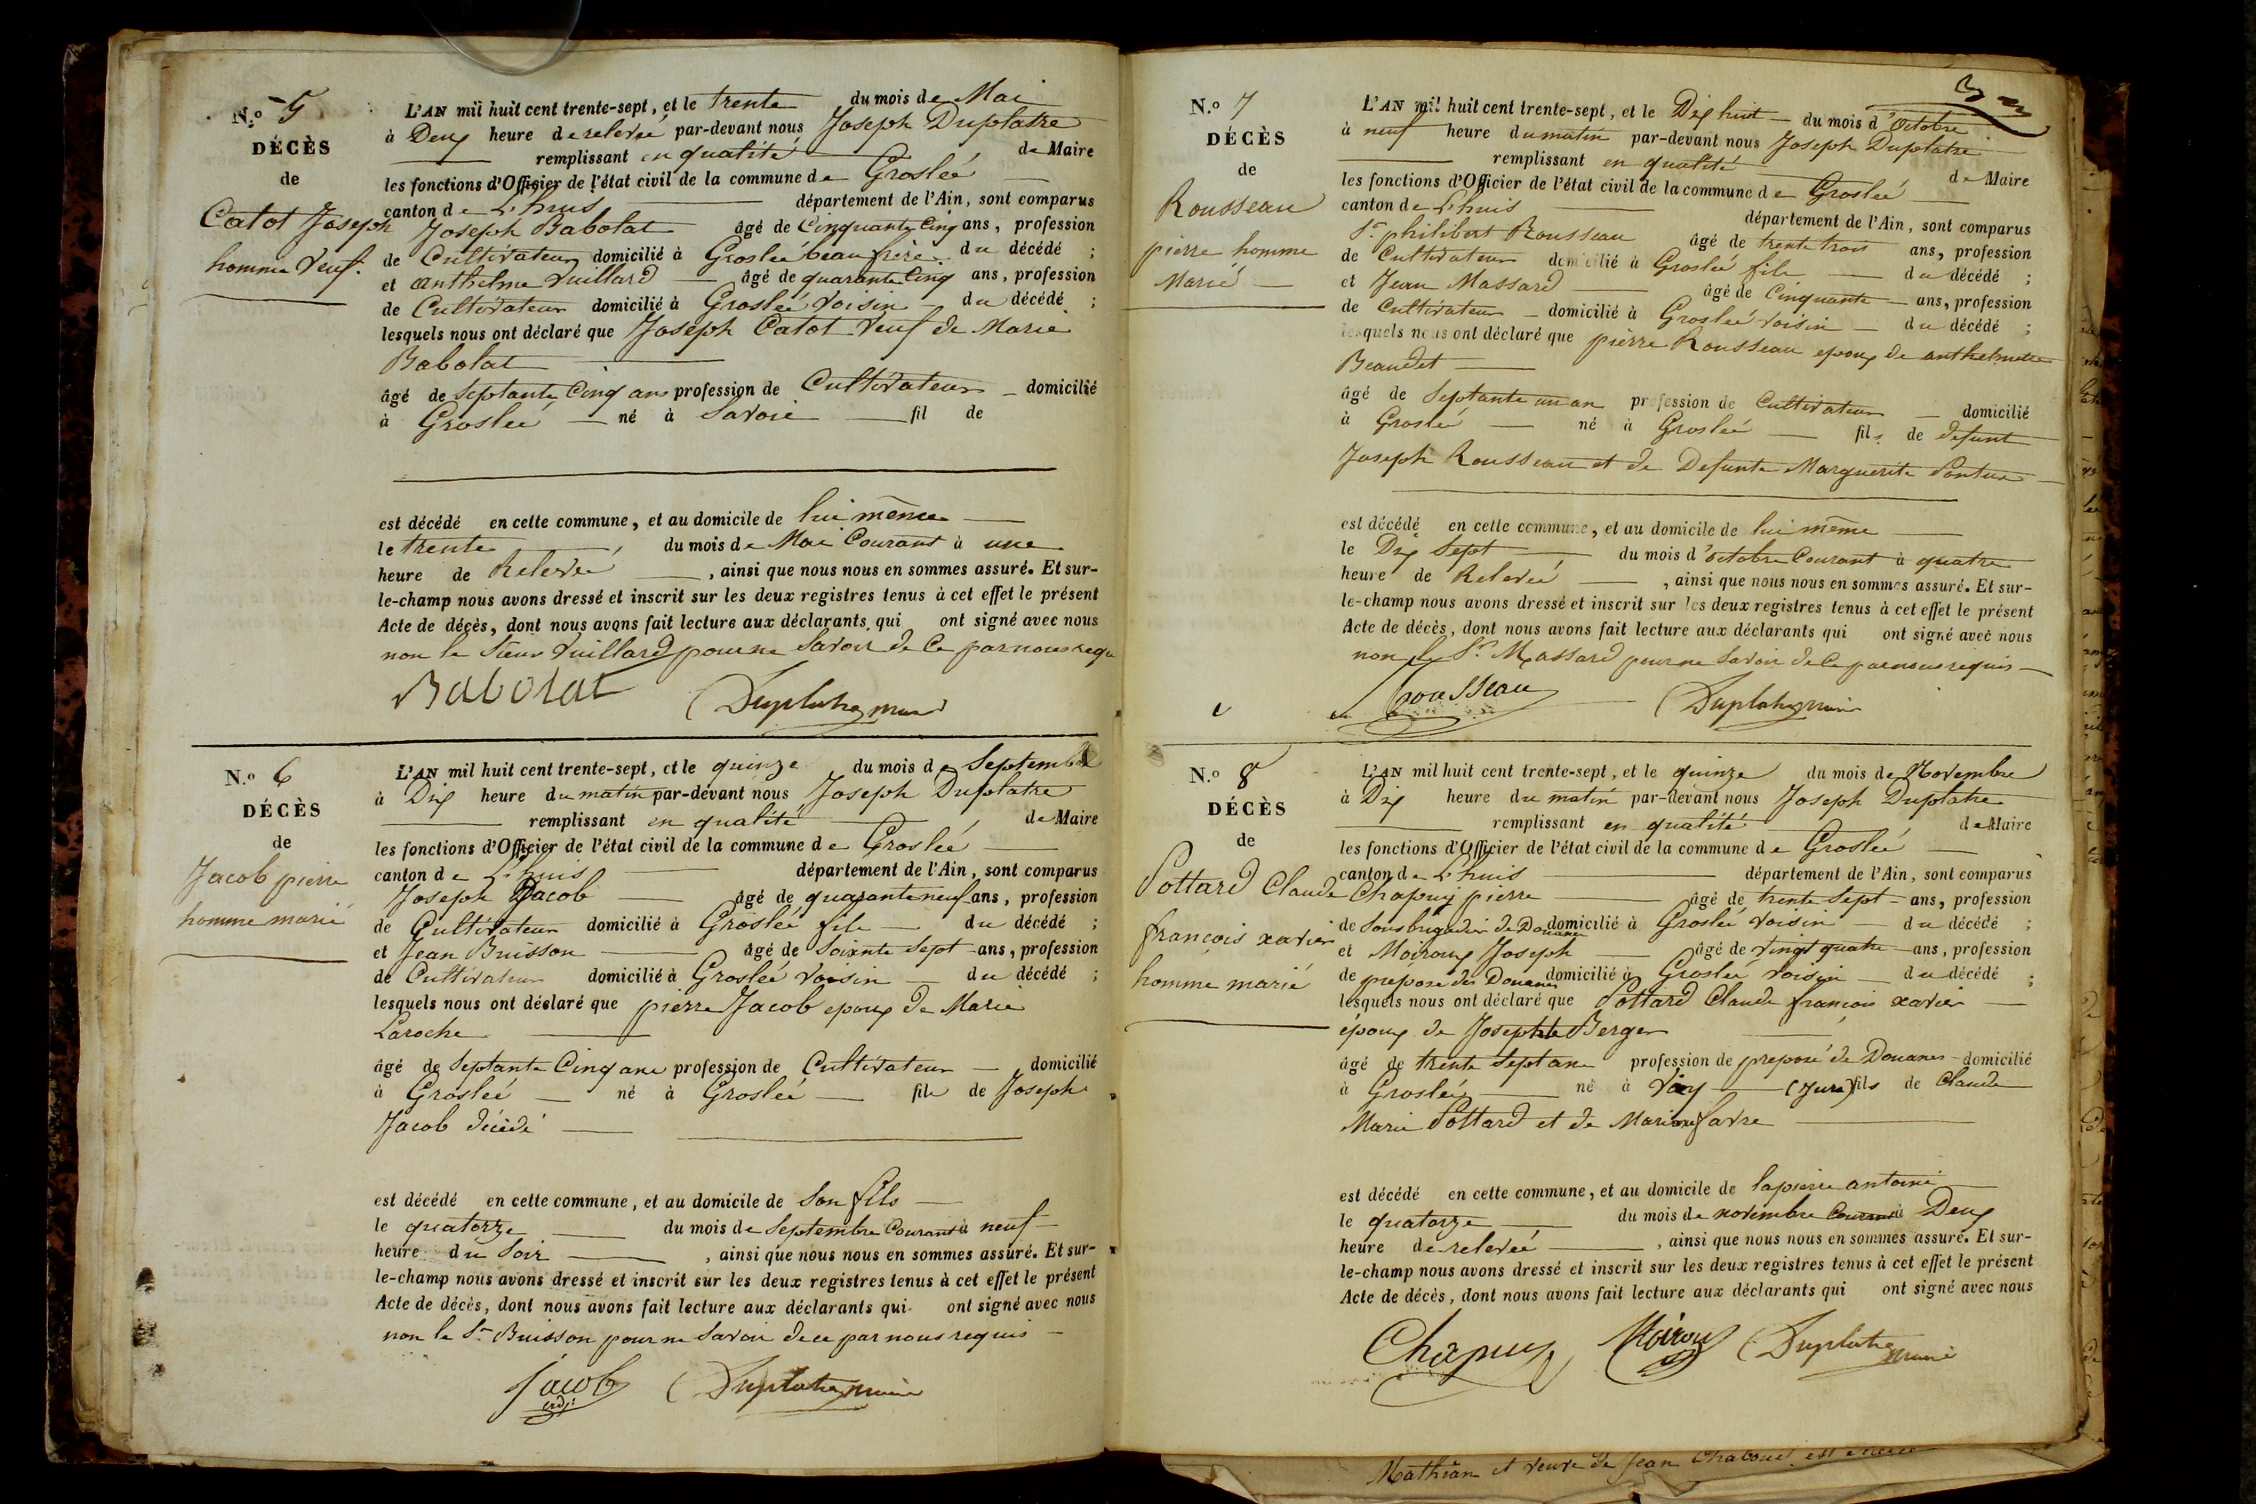 N.o 5
DÉCÈS
de
Catot Joseph
homme veuf.
L'AN mil huit cent trente-sept, et le trente du mois de Mai
à Deux heure de relevée par-devant nous Joseph Duplatre
remplissant en qualité de Maire
les fonctions d'Officier de l'état civil de la commune de Groslée
canton de L'huis département de l'Ain, sont comparus
Joseph Babolat âgé de Cinquante Cinq ans, profession
de Cultivateur domicilié à Groslée beau frère du décédé ;
et anthelme Vuillard âgé de quarante Cinq ans, profession
de Cultivateur domicilié à Groslée voisin du décédé ;
lesquels nous ont déclaré que Joseph Catot veuf de Marie
Babolat
âgé de septante Cinq ans profession de Cultivateur domicilié
à Groslée né à Savoie fil de
est décédé en cette commune, et au domicile de lui même
le trente du mois de Mai Courant à une
heure de Relevée, ainsi que nous nous en sommes assuré. Et sur-
le-champ nous avons dressé et inscrit sur les deux registres tenus à cet effet le présent
Acte de décès, dont nous avons fait lecture aux déclarants qui ont signé avec nous
non le Sieur Vuillard pour ne Savoir de Ce par nous requ
Babolat Duplatre maire
N.o 6
DÉCÈS
de
Jacob pierre
homme marié
L'AN mil huit cent trente-sept, et le quinze du mois de Septembre
à Dix heure du matin par-devant nous Joseph Duplatre
remplissant en qualité de Maire
les fonctions d'Officier de l'état civil de la commune de Groslée
canton de L'huis département de l'Ain, sont comparus
Joseph Jacob âgé de quarante neuf ans, profession
de Cultivateur domicilié à Groslée fils du décédé ;
et Jean Buisson âgé de Soixnte Sept ans, profession
de Cultivateur domicilié à Groslée voisin du décédé ;
lesquels nous ont déclaré que pierre Jacob epoux de Marie
Laroche
âgé de Septante Cinq ans profession de Cultivateur domicilié
à Groslée né à Groslée fils de Joseph
Jacob décédé
est décédé en cette commune, et au domicile de Son fils
le quatorze du mois de Septembre Courant à neuf
heure du Soir, ainsi que nous nous en sommes assuré. Et sur-
le-champ nous avons dressé et inscrit sur les deux registres tenus à cet effet le présent
Acte de décès, dont nous avons fait lecture aux déclarants qui ont signé avec nous
non le Sr Buisson pour ne Savoir de ce par nous requis
Jacob
adj:
Duplatre maire
N.o 7
DÉCÈS
de
Rousseau
pierre homme
Marié
L'AN mil huit cent trente-sept, et le Dix huit du mois d'Octobre
à neuf heure du matin par-devant nous Joseph Duplatre
remplissant en qualité de Maire
les fonctions d'Officier de l'état civil de la commune de Groslée
canton de L'huis département de l'Ain, sont comparus
Sr philibert Rousseau âgé de trente trois ans, profession
de Cultivateur domicilié à Groslée fils du décédé ;
et Jean Massard âgé de Cinquante ans, profession
de Cultivateur domicilié à Groslée voisin du décédé ;
lesquels nous ont déclaré que pierre Rousseau epoux de anthelmette
Beaudet
âgé de Septante un an profession de Cultivateur domicilié
à Groslée né à Groslée fils de defunt
Joseph Rousseau et de Defunte Marguerite Pontus
est décédé en cette commune, et au domicile de lui même
le Dix Sept du mois d'octobre Courant à quatre
heure de Relevée, ainsi que nous nous en sommes assuré. Et sur-
le-champ nous avons dressé et inscrit sur les deux registres tenus à cet effet le présent
Acte de décès, dont nous avons fait lecture aux déclarants qui ont signé avec nous
non le Sr Massard pour ne Savoir de Ce par nous requis
Rousseau Duplatre maire
N.o 8
DÉCÈS
de
Pottard Claude
françois xavier
homme marié
L'AN mil huit cent trente-sept, et le quinze du mois de Novembre
à Dix heure du matin par-devant nous Joseph Duplatre
remplissant en qualité de Maire
les fonctions d'Officier de l'état civil de la commune de Groslée
canton de L'huis département de l'Ain, sont comparus
Chapuy pierre âgé de trente Sept ans, profession
de Sous brigadier de Douanes domicilié à Groslée voisin du décédé ;
et Moiroux Joseph âgé de vingt quatre ans, profession
de préposé des Douanes domicilié à Groslée voisin du décédé ;
lesquels nous ont déclaré que Pottard Claude françois xavier
époux de Josephte Berger
âgé de trente Sept ans profession de preposé de Douanes domicilié
à Groslée né à (Jura) fils de Claude
Marie Pottard et de Marianne favre
est décédé en cette commune, et au domicile de lapierre antoine
le quatorze du mois de novembre Courant à Deux
heure de relevée, ainsi que nous nous en sommes assuré. Et sur-
le-champ nous avons dressé et inscrit sur les deux registres tenus à cet effet le présent
Acte de décès, dont nous avons fait lecture aux déclarants qui ont signé avec nous
Chapuy Moiroux Duplatre maire
Mathian et veuve de Jean